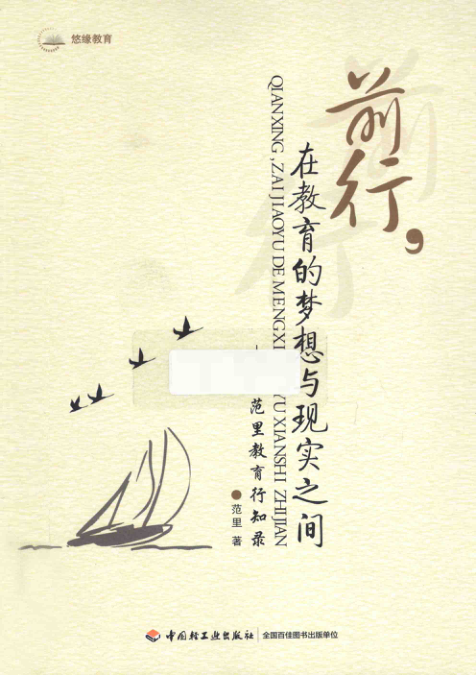 悠缘教育
前行，
在教育的梦想与现实之间
QIANXING , ZAI JIAOYU DE MENGXI YU XIANSHI ZHIJIAN
范里教育行知录
范里 著
中国轻工业出版社
全国百佳图书出版单位